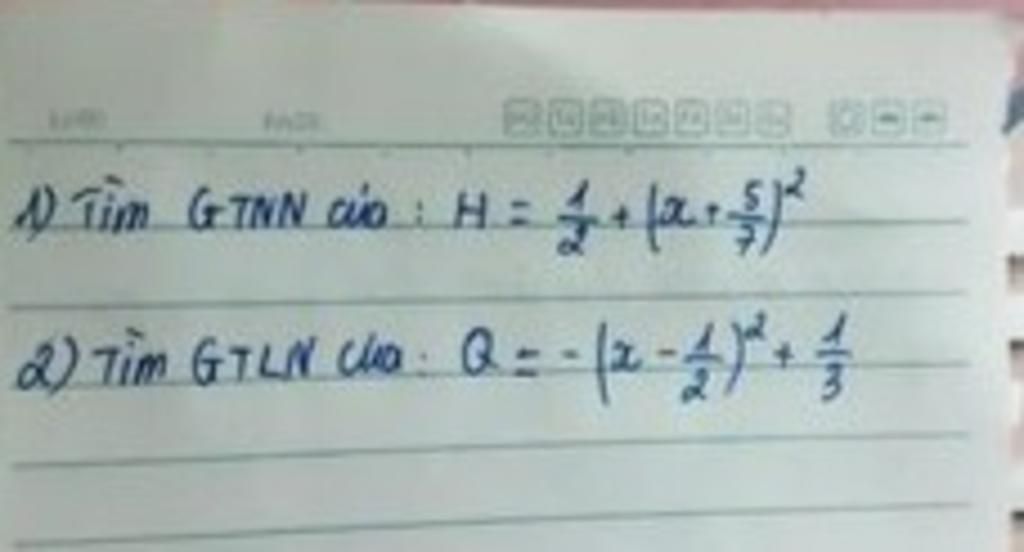 1) Tìm GTNN của : H = \frac{1}{2} + (x + \frac{5}{7})^2
2) Tìm GTLN của : Q = - (x - \frac{1}{2})^2 + \frac{1}{3}